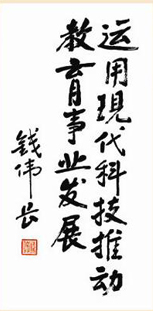 运用現代科技推动
教育事业发展
钱伟长